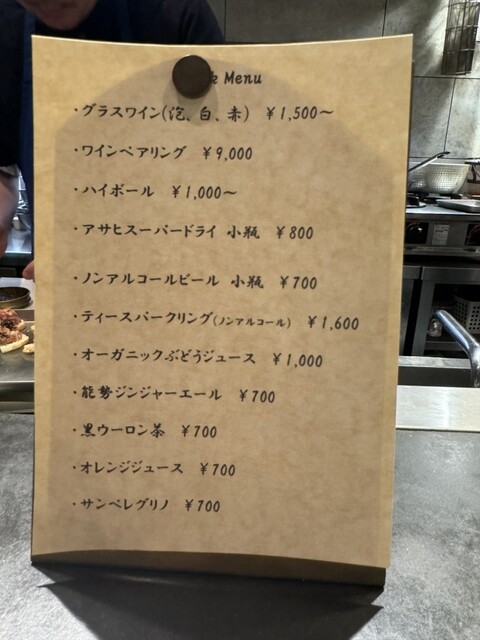 Menu
・グラスワイン(泡、白、赤) ￥1,500～
・ワインペアリング ￥9,000
・ハイボール ￥1,000～
・アサヒスーパードライ 小瓶 ￥800
・ノンアルコールビール 小瓶 ￥700
・ティースパークリング(ノンアルコール) ￥1,600
・オーガニックぶどうジュース ￥1,000
・能勢ジンジャーエール ￥700
・黒ウーロン茶 ￥700
・オレンジジュース ￥700
・サンペレグリノ ￥700